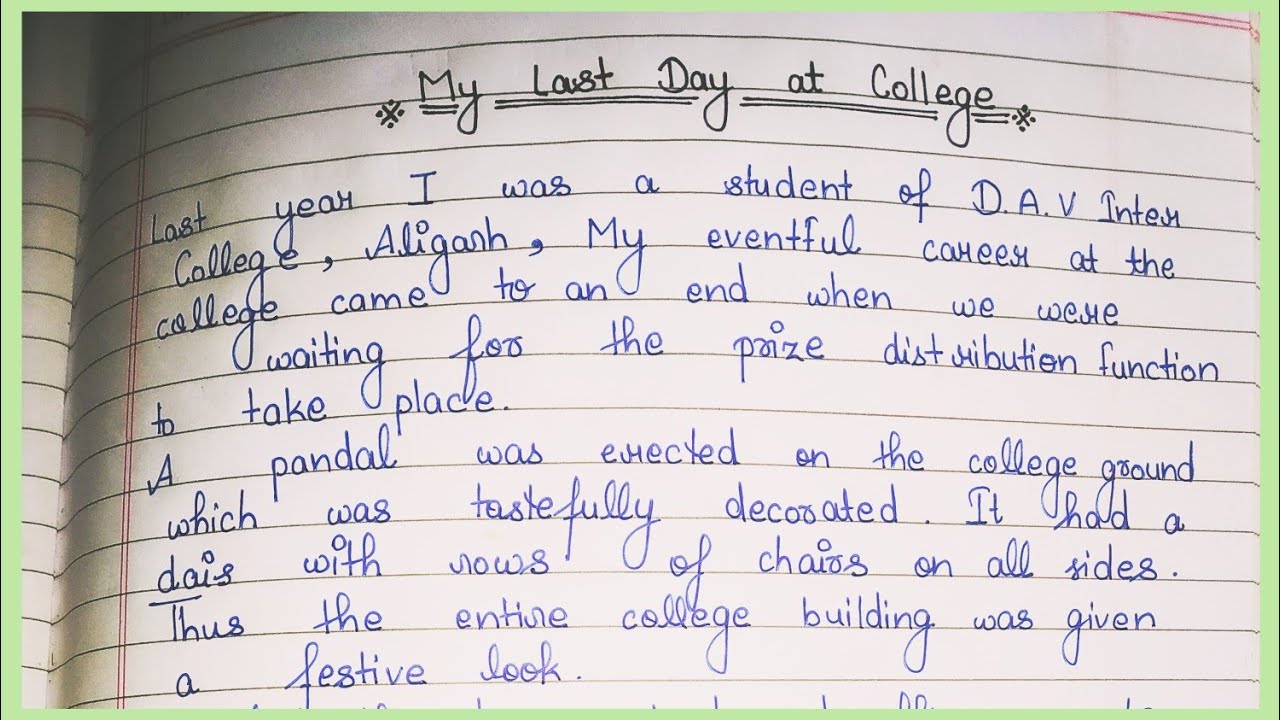 ※ My Last Day at College ※
Last year I was a student of D.A.V Inter
College, Aligarh, My eventful career at the
college came to an end when we were
waiting for the prize distribution function
to take place.
A pandal was erected on the college ground
which was tastefully decorated. It had a
dais with rows of chairs on all sides.
Thus the entire college building was given
a festive look.